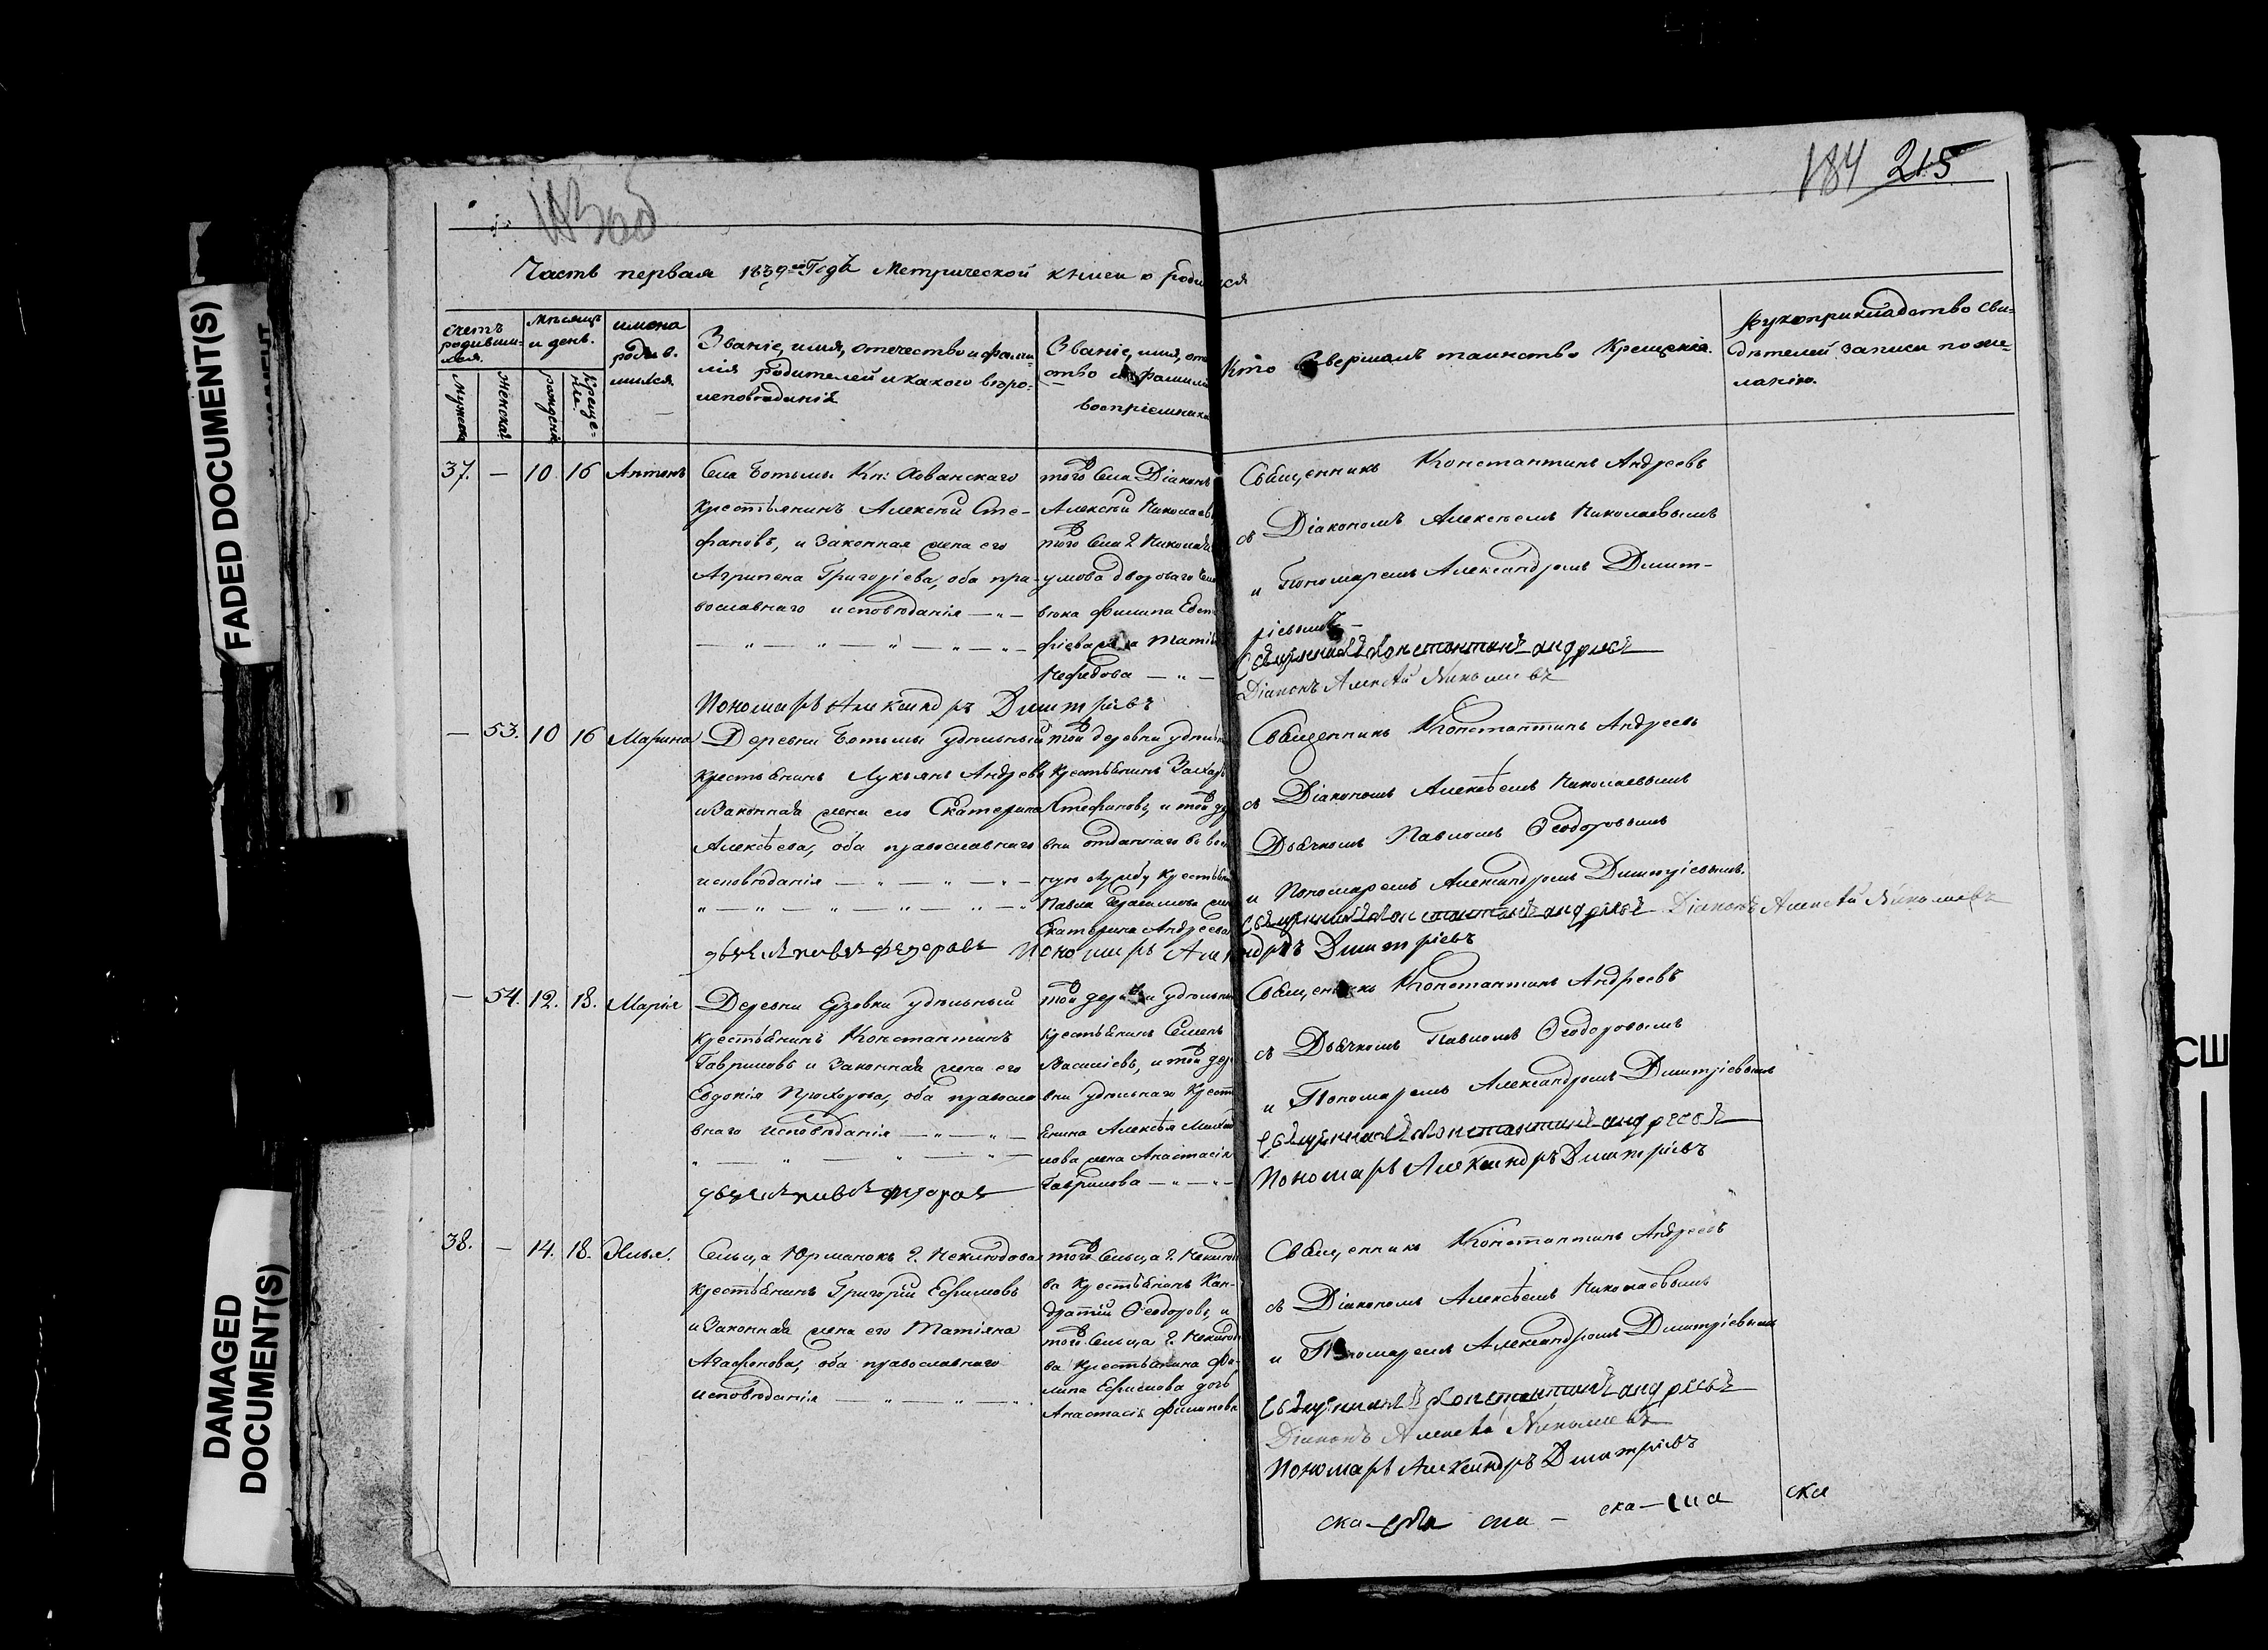 184 215
Часть первая 1839го Годъ Метрической книги о родившихся
счетъ родивши-
хся.
Мужеска
Женска
Мѣсяцъ
и день.
рожденiя
Креще-
нiя.
имена
родив-
шихся
Званiе, имя, отечество и фами-
лiя родителей и какого вѣро-
исповѣданiя
Званiе, имя, оте
ство и фамилiя
воспрiемника
Кто совершалъ таинство Крещенiя.
Рукоприкладство сви-
дѣтелей записи по же-
ланiю.
37. — 10 16 Антонъ
Села Ботьмы Кн: Хованскаго
крестьянинъ Алексѣй Сте-
фановъ, и Законная жена его
Агрипена Григорiева, оба пра-
вославнаго исповѣданiя
того Села Дiаконъ
Алексѣй Николаевъ
того Села г. Никола
умова двороваго
вѣка Филипа Евст
фiева жена Татiа
Нефедова
Священникъ Константинъ Андреевъ
съ Дiакономъ Алексѣемъ Николаевымъ
и Пономаремъ Александромъ Димит-
рiевымъ
Священникъ Константинъ андреевъ
Дiаконъ Алексѣй Николаевъ
Пономарь Александръ Димитрiевъ
— 53. 10 16 Марина
Деревни Ботьмы удѣльный
крестьянинъ Лукьянъ Андреевъ
и Законная жена его Екатерина
Алексѣева, оба православнаго
исповѣданiя
той деревни удѣльн
крестьянинъ Захаръ
Стефановъ, и той де
вни отданнаго въ воен
ную службу крестьян
Павла Герасимова жена
Екатерина Андреева
Священникъ Константинъ Андреевъ
съ Дiакономъ Алексѣемъ Николаевымъ
Дьячкомъ Павломъ Ѳеодоровымъ
и Пономаремъ Александромъ Димитрiевымъ.
Священникъ Константинъ андреевъ Дiаконъ Алексѣй Николаевъ
дьячекъ павелъ федоровъ Пономарь Александръ Димитрiевъ
— 54. 12. 18. Марiя
Деревни Ерзовки удѣльный
крестьянинъ Константинъ
Гавриловъ и Законная жена его
Евдокiя Прохорова, оба правосла
внаго исповѣданiя
той деревни удѣльны
крестьянинъ Семенъ
Василiевъ, и той дер
вни удѣльнаго Крест
янина Алексѣя Михай
лова жена Анастасiя
Гаврилова
Священникъ Константинъ Андреевъ
съ Дьячкомъ Павломъ Ѳеодоровымъ
и Пономаремъ Александромъ Димитрiевымъ
Священникъ Константинъ андреевъ
Пономарь Александръ Димитрiевъ
дьячекъ павелъ федоровъ
38. — 14. 18. Илья.
Сельца Юрманокъ г. Неклюдова
крестьянинъ Григорiй Ефимовъ
и Законная жена его Татiяна
Агафонова, оба православнаго
исповѣданiя
того Сельца г. Неклюдо
ва крестьянинъ Кан-
дратiй Ѳеодоровъ, и
того Сельца г. Неклюдо
ва крестьянина Фи-
липа Ефимова дочь
Анастасiя Филипова
Священникъ Константинъ Андреевъ
съ Дiакономъ Алексѣемъ Николаевымъ
и Пономаремъ Александромъ Димитрiевымъ
Священникъ Константинъ андреевъ
Дiаконъ Алексѣй Николаевъ
Пономарь Александръ Димитрiевъ
ска
FADED DOCUMENT(S)
DAMAGED
DOCUMENT(S)
СШ